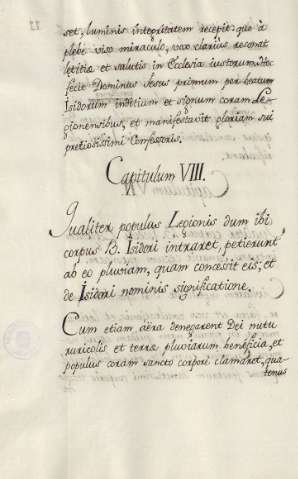 set, luminis integritatem recepit: quo à
plebe viso miraculo, vox clariùs resonat
letitiæ et salutis in Ecclesia iustorum, hoc
fecit Dominus Iesus primum per beatum
Isidorum inditium et signum coram Le-
gionensibus, et manifestavit gloriam sui
pretiosissimi Confessoris.
Capitulum VIII.
Qualiter populus Legionis dum ibi
corpus B. Isidori intraret, petierunt
ab eo pluviam, quam concessit eis; et
de Isidori nominis significatione.
Cum etiam aëra denegarent Dei nutu
ruricolis et terræ pluviarum beneficia, et
populus coram sancto corpori clamaret, qua-
tenus